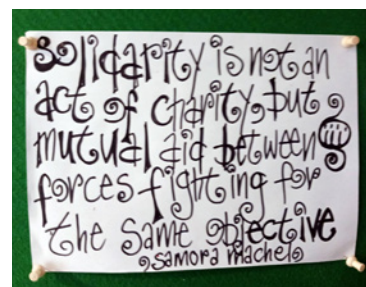 solidarity is not an
act of charity, but
mutual aid between
forces fighting for
the same objective
samora machel